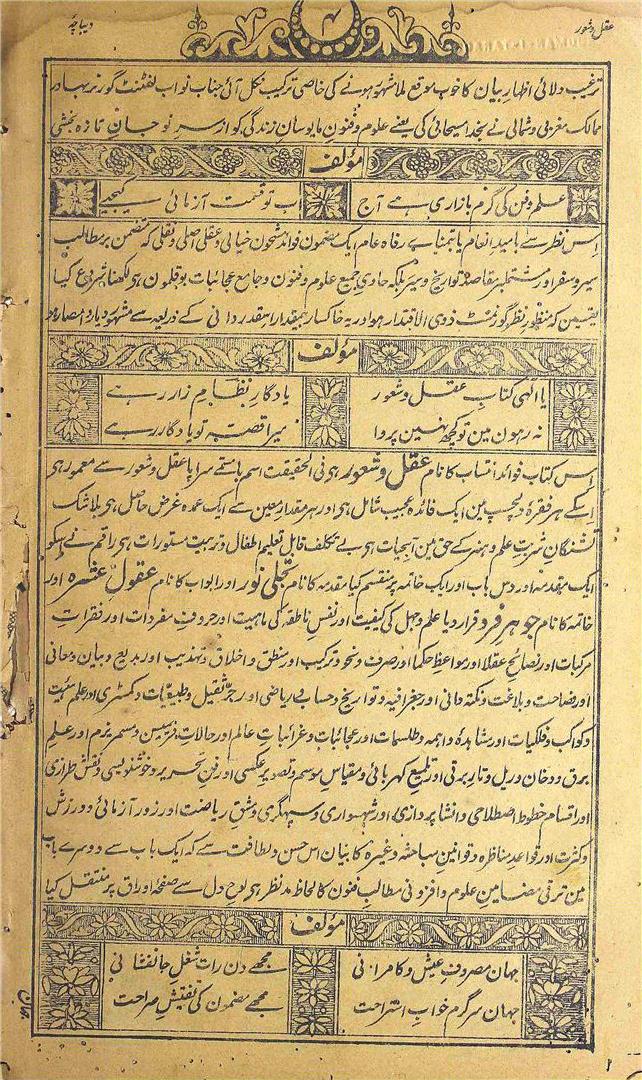 عقل و شعور
۴
دیباچہ
ترغیب دلائی اظہار بیان کا خوب موقع ملا شہرہ ہونے کی خاصی ترکیب نکل آئی جناب نواب لفٹنٹ گورنر بہادر
ممالک مغربی و شمالی نے بخدا مسیحائی کی یعنے علوم و فنون مایوسان زندگی کو از سر نو جان تازہ بخشی
مؤلف
علم و فن کی گرم بازاری ہے آج
اب تو قسمت آزمائی کیجیے
اس نظر سے بامید انعام یا بتمناے رفاہ عام ایک مضمون فوائد مشحون خیالی و عقلی اصلی و نقلی کہ متضمن بر مطالب
سیر و سفر اور مشتملبر مقاصد تواریخ و سیر بلکہ حاوی جمیع علوم و فنون و جامع عجائبات بوقلمون ہی لکھنا شروع کیا
یقین کہ منظور نظر گورنمنٹ ذوی الاقتدار ہو اور یہ خاکسار بمقدار اسقدر دانی کے ذریعہ سے مشہور دیار و امصار ہو
مؤلف
یا الٰہی کتاب عقل و شعور
یادگار نظام زار رہے
نہ رہون مین تو کچھ نہین پروا
میرا قصہ تو یادگار رہے
اس کتاب فوائد انتساب کا نام عقل و شعور ہی فی الحقیقت اسم بامسمے سراپا عقل و شعور سے معمور ہی
اسکے ہر فقرہ دلچسپ مین ایک فائدہ عجیب شامل ہی اور ہر مقدار معین سے ایک عمدہ غرض حاصل ہی بلا شک
تشنگان شربت علم و ہنر کے حق مین آبحیات ہی بے تکلف قابل تعلیم اطفال و تربیت مستورات ہی راقم نے اسکو
ایک مقدمہ اور دس باب اور ایک خاتمہ پر منقسم کیا مقدمہ کا نام تجلی نور اور ابواب کا نام عقول عشرہ اور
خاتمہ کا نام جوہر فرد قرار دیا علم و جہل کی کیفیت اور نفس ناطقہ کی ماہیت اور حروف مفردات اور فقرات
مرکبات اور نصائح عقلا اور مواعظ حکما اور صرف و نحو و ترکیب اور منطق و اخلاق و تہذیب اور بدیع و بیان و معانی
اور فصاحت و بلاغت و نکتہ دانی اور جغرافیہ و تواریخ و حساب ریاضی اور جر ثقیل و طبیعیات و کمسٹری اور علم ہئیت
و کواکب و فلکیات اور مشاہدہ واہمہ و طلسمات اور عجائبات و غرائبات عالم اور حالات و مسمریزم اور علم
برق و دخان و ریل و تار برقی اور تلمیع کہربائی و مقیاس موسم و تصویر عکسی اور فن تحریر و خوشنویسی و نقش طرازی
اور اقسام خطوط اصطلاحی و انشا پردازی اور شہسواری و سپہگری و مشق ریاضت اور زور آزمائی و ورزش
و کثرت اور قواعد مناظرہ و قوانین مباحثہ وغیرہ کا بیان اس حسن و لطافت سے کہ ایک باب سے دوسرے باب
مین ترقی مضامین علوم و افزونی مطالب فنون کا لحاظ مد نظر ہی لوح دل سے صفحہ اوراق پر منتقل کیا
مؤلف
جہان مصروف عیش و کامرانی
مجھے دن رات شغل جانفشانی
جہان سرگرم خواب استراحت
مجھے مضمون کی تفتیش صراحت
جہان